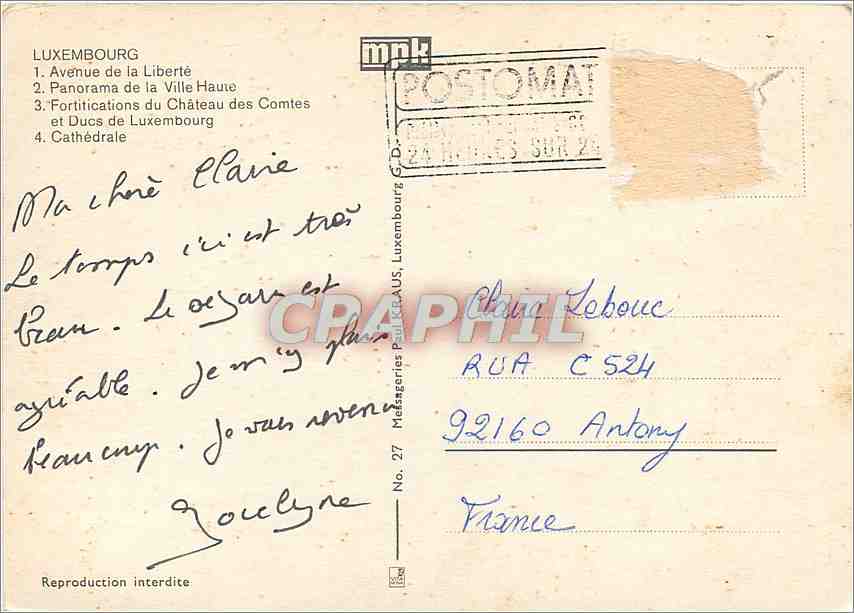 LUXEMBOURG
1. Avenue de la Liberté
2. Panorama de la Ville Haute
3. Fortifications du Château des Comtes
et Ducs de Luxembourg
4. Cathédrale
mpk
POSTOMAT
24 HEURES SUR 24
Ma chère Claire
Le temps ici est très
beau. Le séjour est
agréable. Je m'y plais
beaucoup. Je vais revenir
Jocelyne
Reproduction interdite
No. 27 Messageries Paul KRAUS, Luxembourg G. D.
CPAPHIL
Claire Lebouc
RUA C 524
92160 Antony
France